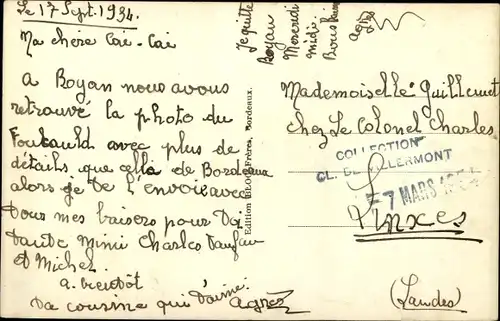 Le 17 Sept. 1934.
Ma chère Coi-Coi
A Royan nous avons
retrouvé la photo du
Foubauld avec plus de
détails que celle de Bordeaux
alors je te l'envoie avec
tous mes baisers pour ta
tante Mimi Charles
et Michel.
a bientôt
ta cousine qui t'aime.
Agnès
Je quitte
Royan
Mercredi
midi.
Agnès
Edition Frères, Bordeaux.
Mademoiselle Guillemet
chez Le Colonel Charles
COLLECTION
CL. DE CLERMONT
7 MARS
Linxes
(Landes)